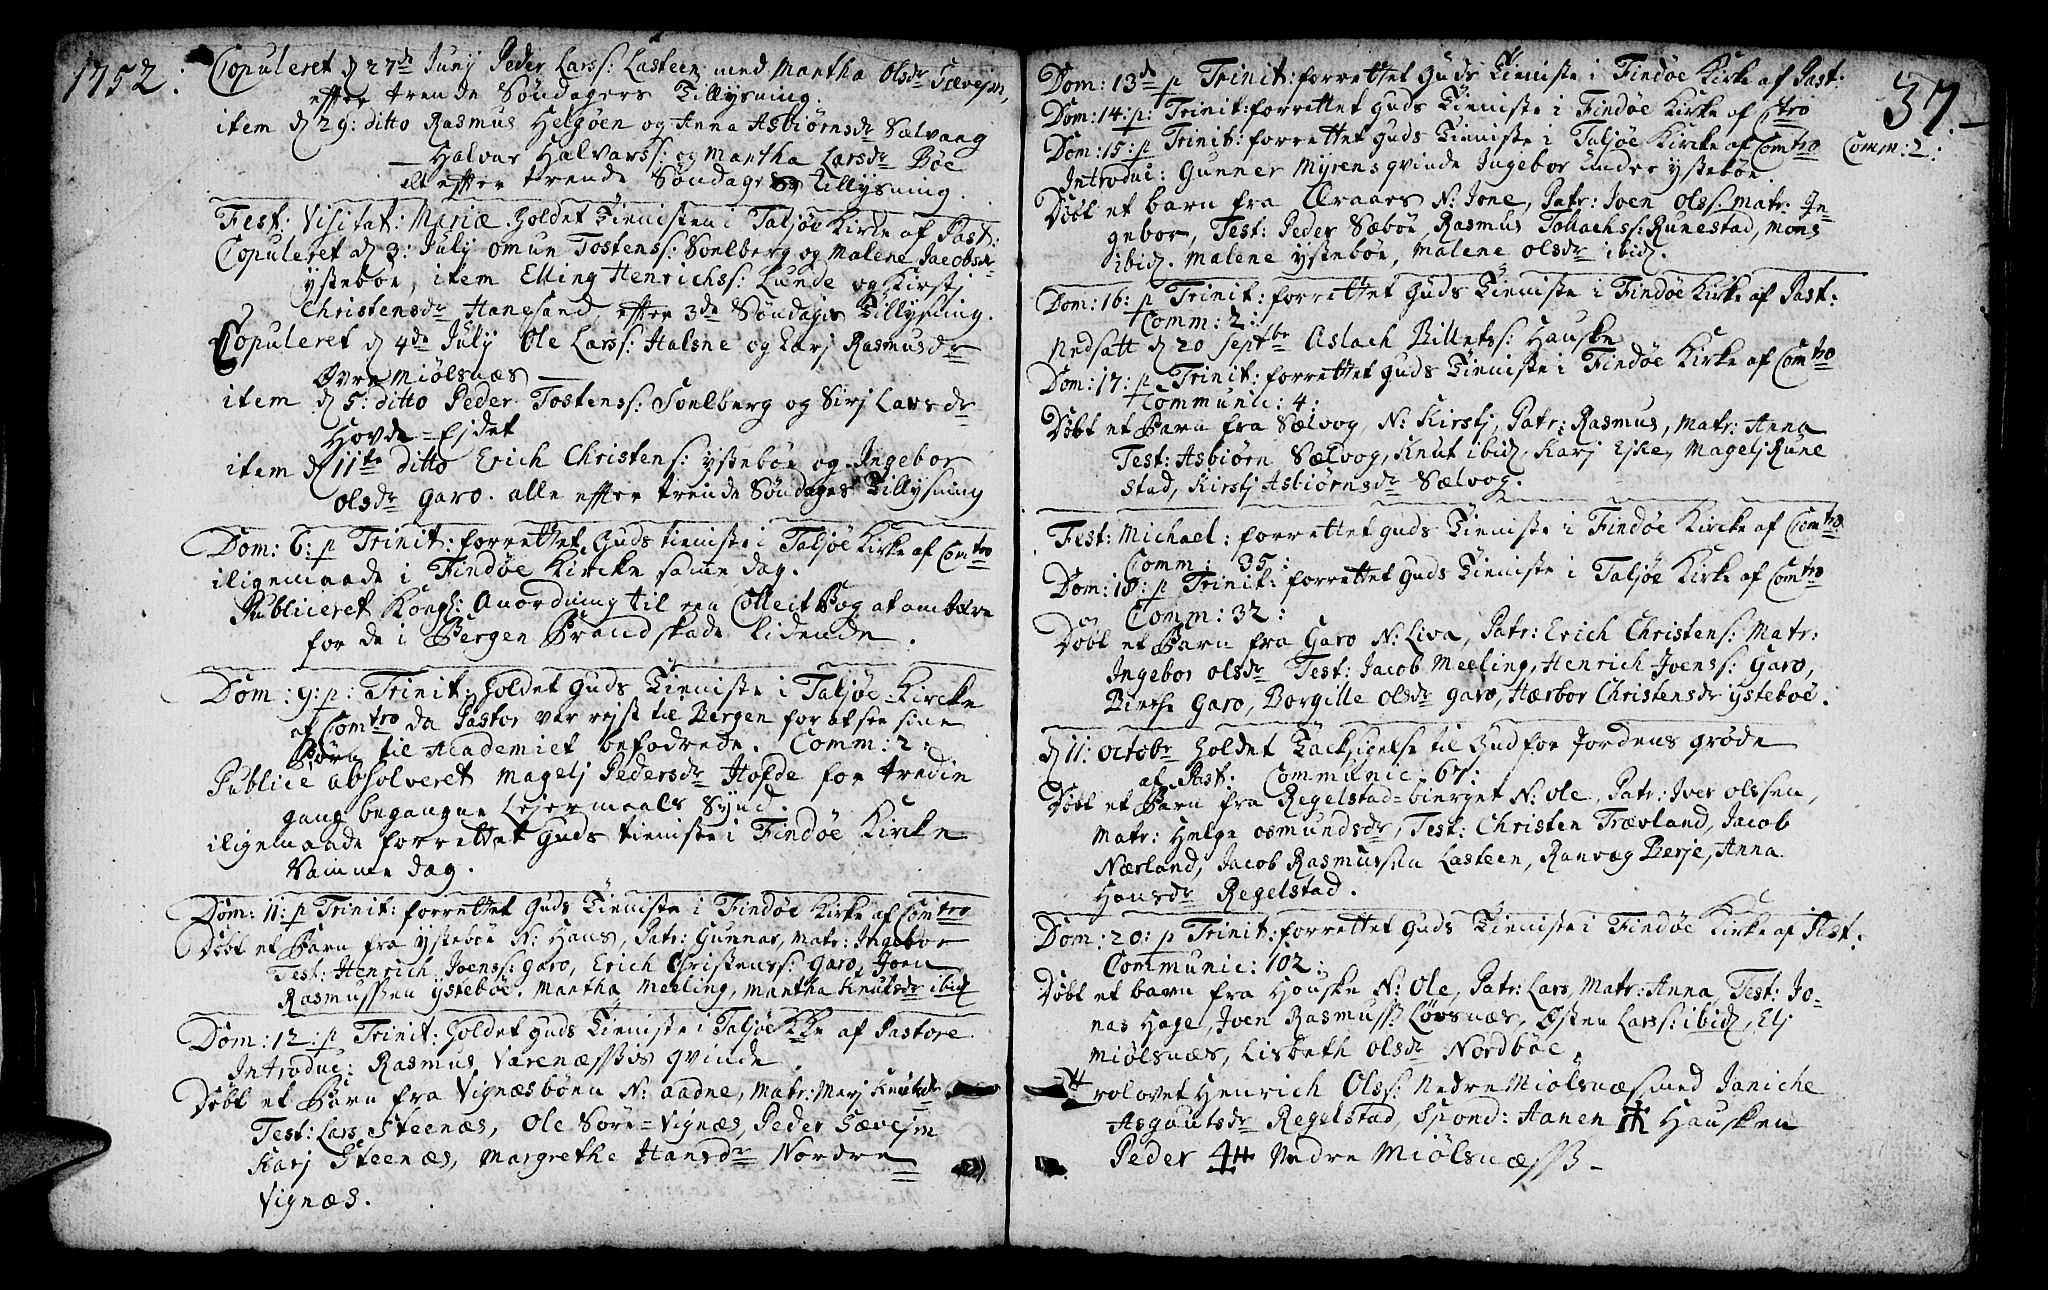 1752:
Copuleret d 27de Junij Peder Larss: Lasteen med Mantha olsdr
effter trende Søndagers Tillysning.
item d 29: ditto Rasmus Helgøen og Anna Asbiørnsdr Sælvaag
— Halvar Halvarss: og Mantha Larsdr Bøe
alt effter trende Søndagers tillysning.
Fest: Visitat: Mariæ Holdet Tienisten i Taljøe Kircke af Past:
Copuleret d 3: Julij omun Tostenss: Soelberg og Malene Jacobsdr
ystebøe, item Elling Henrichss: Lunde og Kirstj
Christensdr Hanesand effter 3de Søndagers Tillysning.
Copuleret d 4de Julij Ole Larss: Halsne og Karj Rasmusdr
Øvre Miølsnæs —
item d 5: ditto Peder Tostenss: Soelberg og Sirj Larsdr
Hovde=Ejdet
item d 11te ditto Erich Christens: ystebøe og Ingebor
olsdr Garo. alle effter trende Søndagers Tillysning
Dom: 6: p Trinit: forrettet Guds tieniste i Taljøe Kirke af Comtro
iligemaade i Findøe Kircke samme dag.
Publiceret Kongl: Anordning til een Collect Bog at ombære
for de i Bergen Brandskade lidende.
Dom: 9: p: Trinit: Holdet Guds Tieniste i Taljøe Kircke
af Comtro da Pastor var rejst til Bergen for at see sine
Børn til Academiet befodrede. Comm: 2:
Publice absolveret Magelj Pedersdr Hofde for tredie
gang begangne Lejermaals Synd.
iligemaade forrettet Guds tieniste i Findøe Kircke
Samme dag.
Dom: 11: p Trinit: forrettet Guds Tieniste i Findøe Kirke af Comtro
Døbt et Barn fra ystebøe N: Hans, Patr: Gunnar, Matr: Ingebor
Test: Henrich Joenss: Garo, Erich Christenss: Garo, Joen
Rasmussen ystebøe. Mantha Meeling, Mantha Knutsdr ibid
Dom: 12: p Trinit: Holdet guds Tieniste i Taljøe Kke af Pastore
Introduc: Rasmus Varenæssis qvinde
Døbt et Barn fra Vignæsbøen N: aadne, Matr: Marj Knutsdr
Test: Lars Steenæs, Ole Søre=Vignæs, Peder
Karj Steenæs, Margrethe Hansdr Nordre
Vignæs.
37.
Dom: 13de p Trinit: forrettet Guds Tieniste i Findøe Kirke af Past:
Dom: 14: p: Trinit: forrettet Guds Tieniste i Findøe Kirke af Ctro
Dom: 15: p Trinit: forrettet Guds Tieniste i Taljøe Kircke af Comtro Comm: 2:
Introduc: Gunner Myrens qvinde Ingebor under ystebøe
Døbt et barn fra N: Jone, Patr: Joen Olss: Matr: In-
gebor, Test: Peder Sæbøe, Rasmus Tollachss: Runestad, Mons
ibid. Malene ystebøe, Malene olsdr ibid.
Dom: 16: p Trinit: forrettet Guds Tieniste i Findøe Kirke af Past:
Comm: 2:
Nedsatt d 20 septbr Aslach Hauske
Dom: 17: p Trinit: forrettet Guds Tieniste i Findøe Kirke af Comtro
Communic: 4:
Døbt et Barn fra Sælvog, N: Kirstj, Patr: Rasmus, Matr: Anna
Test: Asbiørn Sælvog, Knut ibid, Karj Eske, Magelj Rune
stad, Kirstj Asbiørnsdr Sælvog.
Fest: Michael: forrettet Guds Tieniste i Findøe Kircke af Comtro
Comm: 35:
Dom: 18: p Trinit: forrettet Guds Tieniste i Taljøe Kirke af Comtro
Comm: 32:
Døbt et Barn fra Garo N: Liva, Patr: Erich Christens: Matr:
Ingebor olsdr Test: Jacob Meeling, Henrich Joenss: Garo,
Birthe Garo, Borgille olsdr garo, Hærbor Christensdr ystebøe.
d 11: octobr Holdet Tacksigelse til Gud for Jordens grøde
af Past: Communic: 67:
Døbt et Barn fra Regelstad=bierget N: Ole, Patr: Iver olssen,
Matr: Helge osmundsdr, Test: Christen Trævland, Jacob
Nærland, Jacob Rasmussen Lasteen, Ranvæg Berje, Anna
Hansdr Regelstad.
Dom: 20: p Trinit: forrettet Guds Tieniste i Findøe Kirke af Past:
Communic: 102:
Døbt et barn fra Hauske N: Ole, Patr: Lars, Matr: Anna, Test: Jo-
nas Hage, Joen Rasmuss: Lørsnæs, Østen Larss: ibid, Elj
Miølsnæs, Lisbeth olsdr Nordbøe
Trolovet Henrich Olss: Nedre Miølsnæs med Janiche
Asgautsdr Regelstad, Spond: Aanen Hausken
Peder Nedre Miølsnæss –